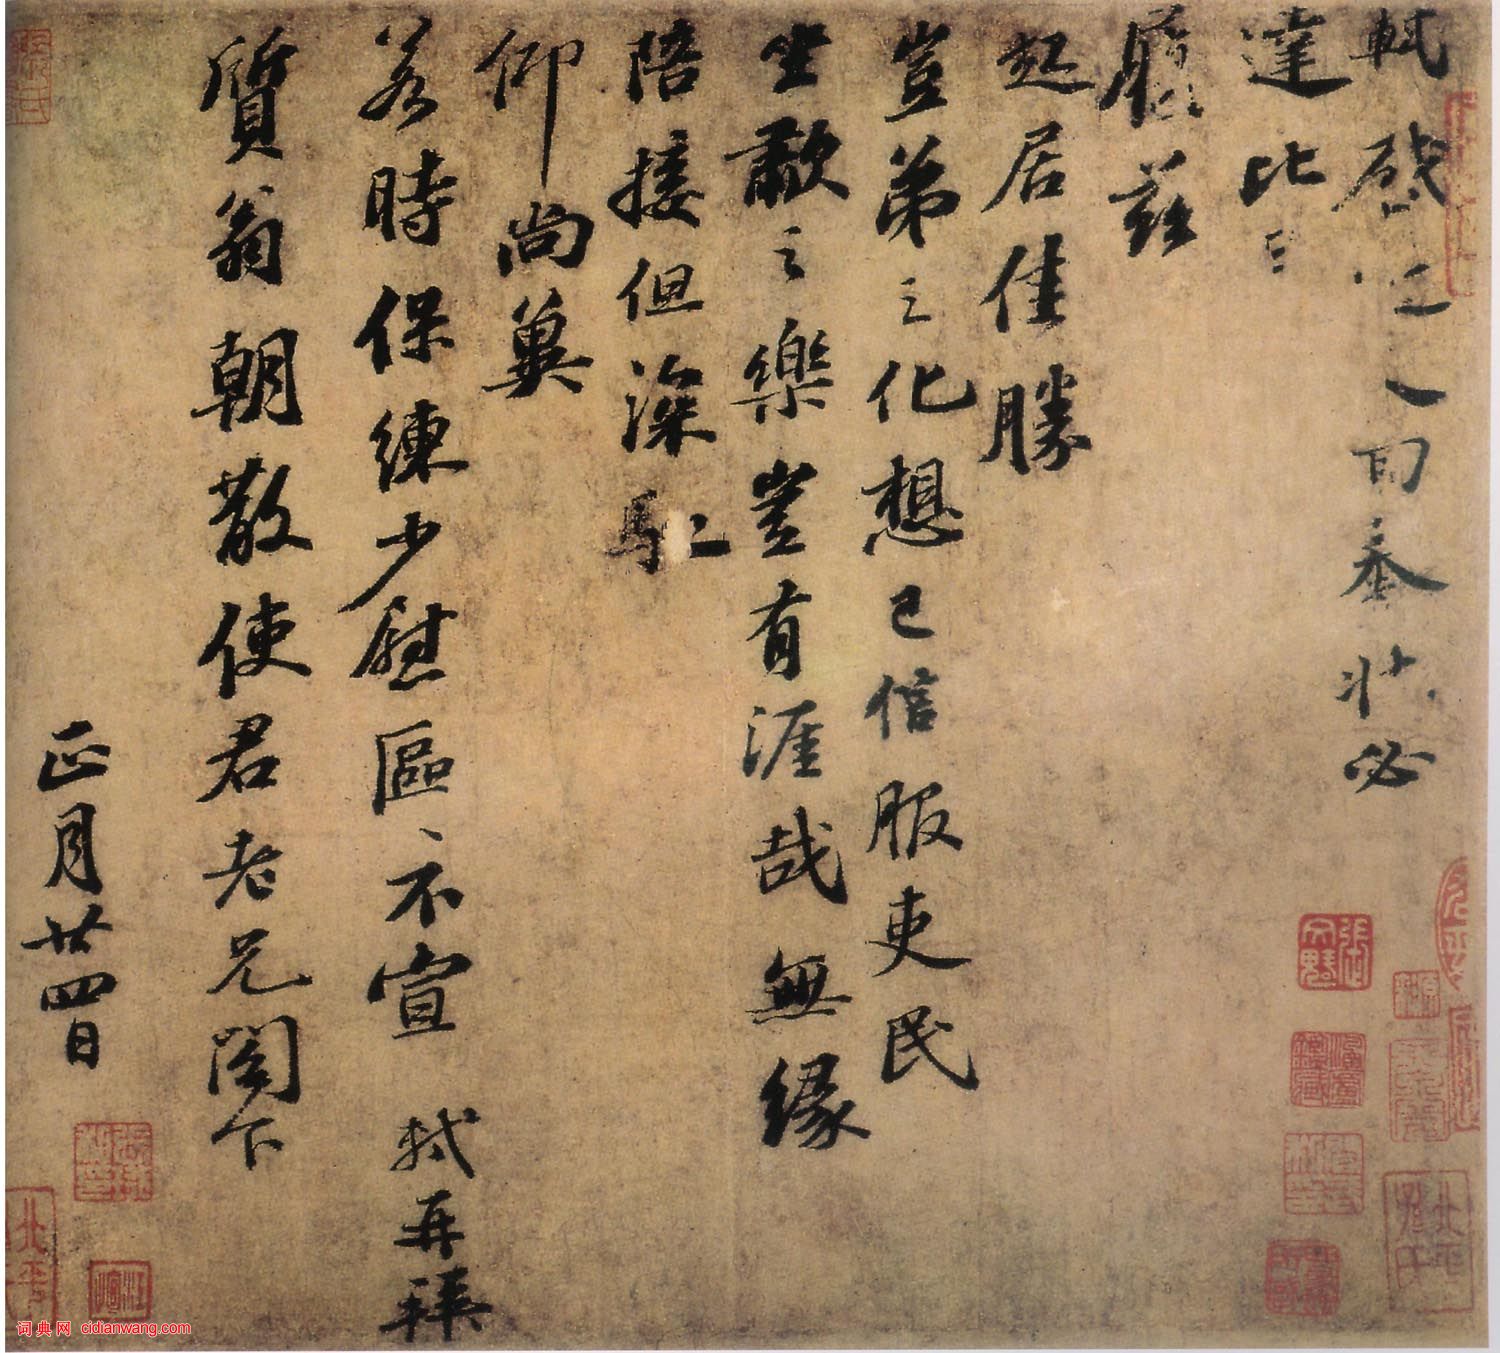 軾啓近人回奉狀必
達比
履茲
起居佳勝
豈弟之化想已信服吏民
坐歗之樂豈有涯哉無緣
陪接但深馳
仰尚冀
若時保練少慰區〻不宣 軾再拜
質翁朝散使君老兄閣下
正月廿四日
词典网 cidianwang.com